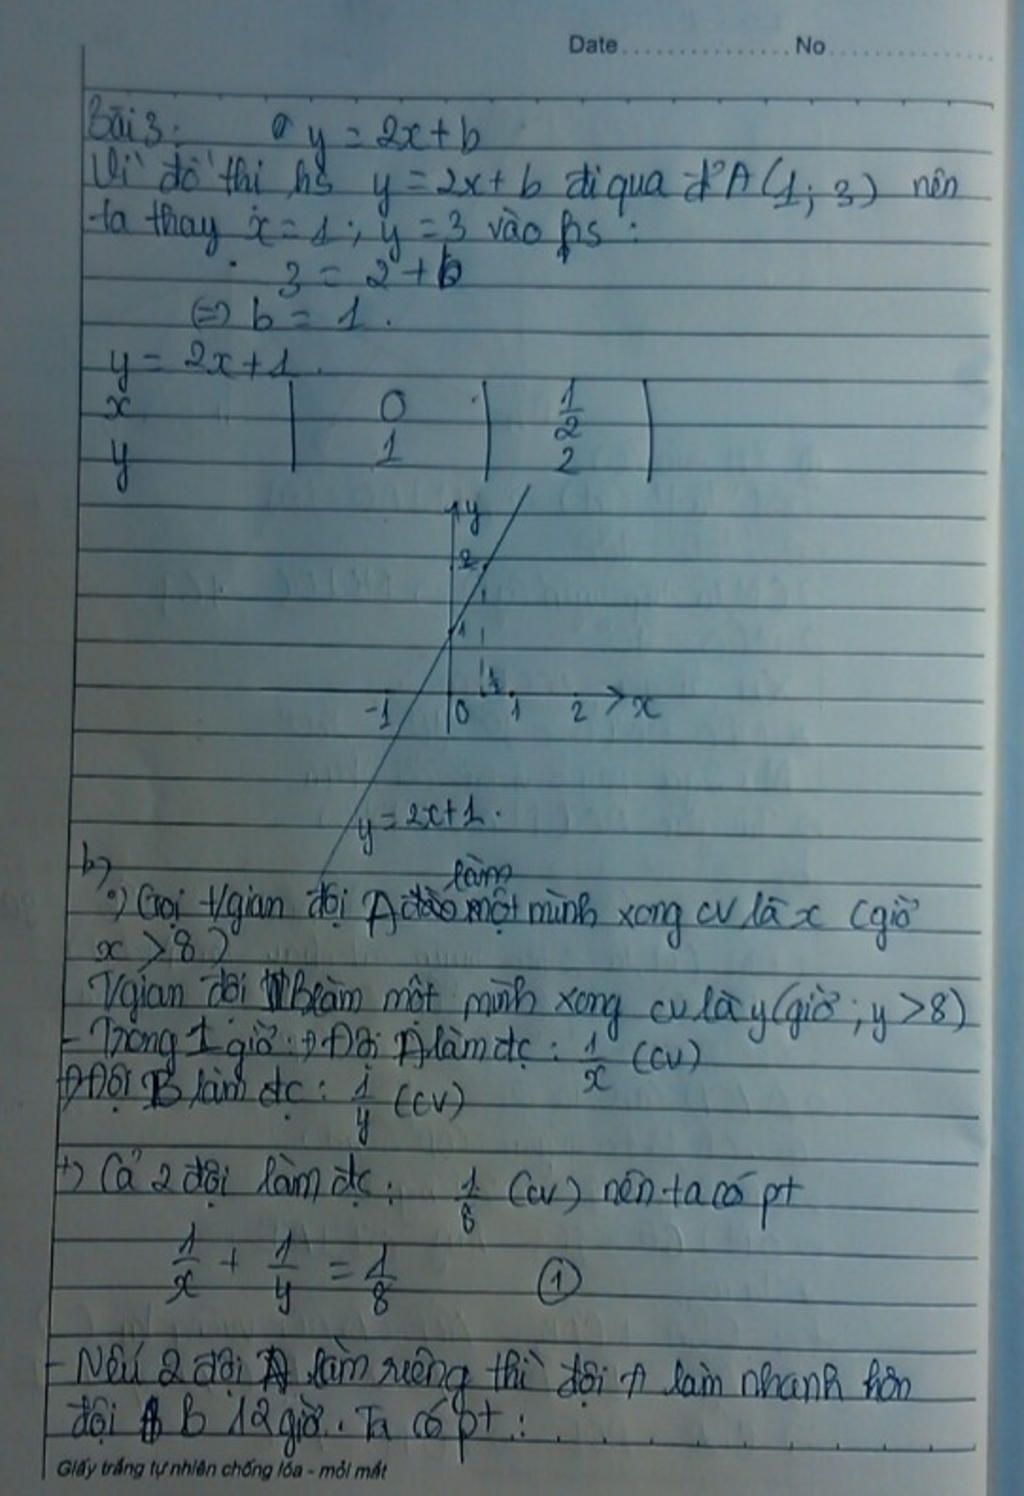 Date ............... No ...............
Bài 3: a, y = 2x + b
Vì đồ thi hs y = 2x + b đi qua đ² A (1; 3) nên
ta thay x = 1; y = 3 vào hs :
3 = 2 + b
⇔ b = 1.
y = 2x + 1.
x | 0 | 1/2 |
y | 1 | 2 |
y
2
1
1/2
-1 0 1 2 x
y = 2x + 1.
b,
làm
*) Gọi t/gian đội A một mình xong cv là x (giờ
x > 8)
T/gian đội B làm một mình xong cv là y (giờ; y > 8)
- Trong 1 giờ: +) Đội A làm đc : 1/x (cv)
+) Đội B làm đc : 1/y (cv)
+) Cả 2 đội làm đc : 1/8 (cv) nên ta có pt
1/x + 1/y = 1/8 ①
- Nếu 2 đội làm riêng thì đội A làm nhanh hơn
đội B 12 giờ. Ta có pt :
Giấy trắng tự nhiên chống lóa - mỏi mắt